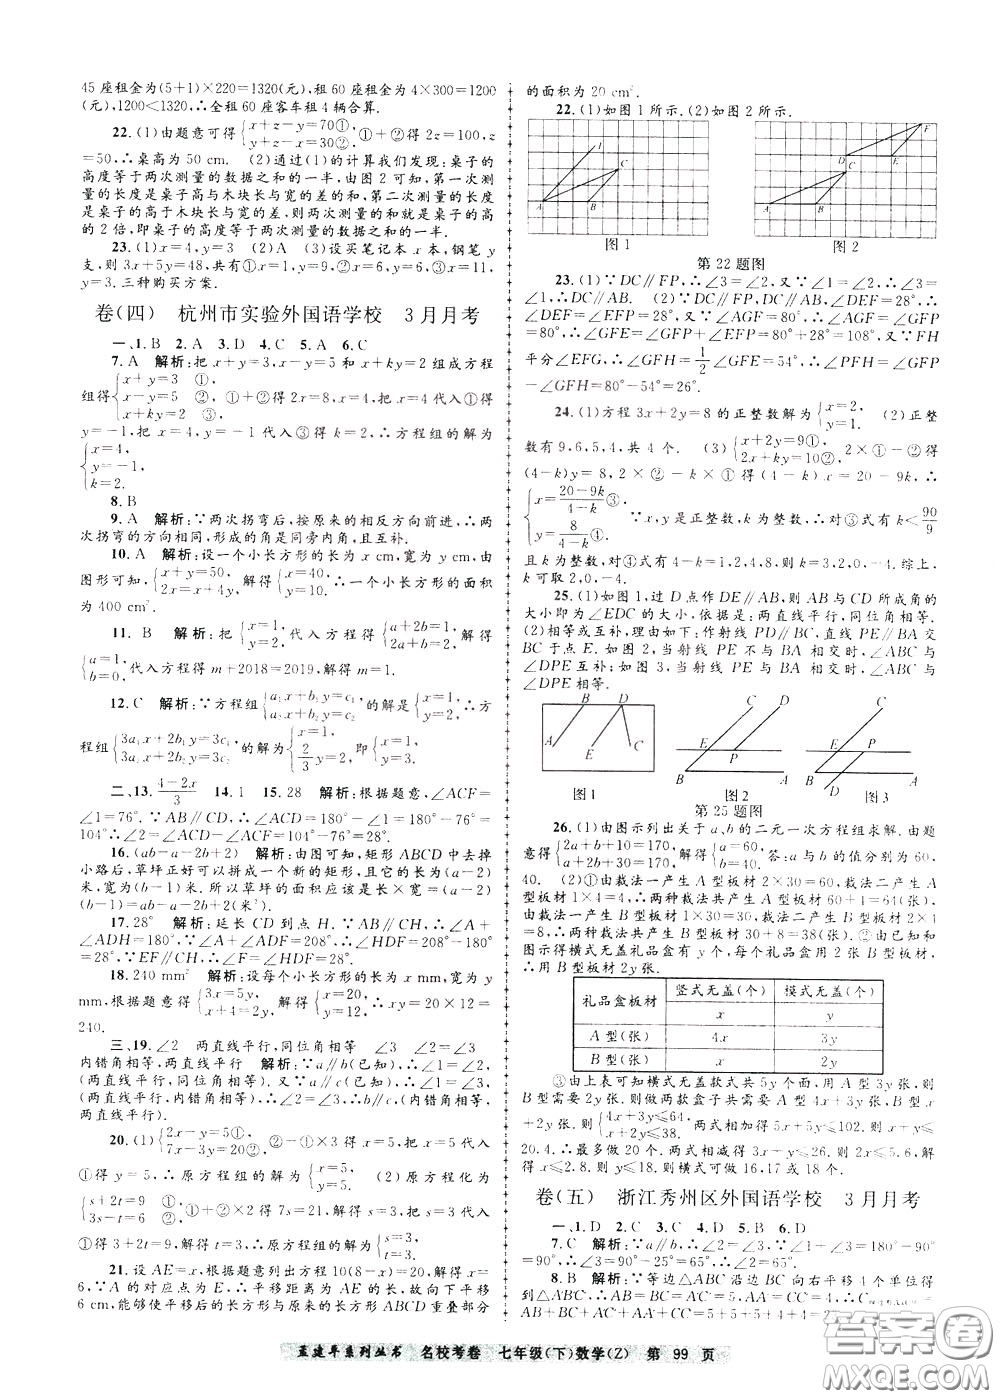 45座租金为(5+1)×220=1320(元),租60座租金为4×300=1200
(元),1200<1320,∴全租60座客车租4辆合算.
22.(1)由题意可得{x+z-y=70①, x+y-z=30②.(1)+(2)得2z=100,z
=50,∴桌高为50 cm. (2)通过(1)的计算我们发现:桌子的
高度等于两次测量的数据之和的一半,由图2可知,第一次测
量的长度是桌子高与木块长与宽的差的和,第二次测量的长度
是桌子的高于木块长与宽的差,则两次测量的和就是桌子高度
的2倍,即桌子的高度等于两次测量的数据之和的一半.
23.(1)x=4,y=3 (2)A (3)设买笔记本x本,钢笔y
支,则3x+5y=48,共有①x=1,y=9;②x=6,y=6;③x=11,
y=3.三种购买方案.
卷(四) 杭州市实验外国语学校 3月月考
一、1.B 2.A 3.D 4.C 5.A 6.C
7.A 解析:把x+y=3,x-y=5和x+ky=2组成方程
组得{x+y=3 ①, x-y=5 ②, x+ky=2 ③,①+②得2x=8,x=4,把x=4代入①得
y=-1,把x=4,y=-1代入③得k=2,∴方程组的解为
{x=4, y=-1, k=2.
8.B
9.A 解析:∵两次拐弯后,按原来的相反方向前进,∴两
次拐弯的方向相同,形成的角是同旁内角,且互补.
10.A 解析:设一个小长方形的长为x cm,宽为y cm,由
图形可知,{x+y=50, 2x=x+4y,解得{x=40, y=10.∴一个小长方形的面积
为400 cm².
11.B 解析:把{x=1, y=2代入方程得{a+b=1, 2a+b=2,解得
{a=1, b=0.代入方程得m+2018=2019,解得m=1.
12.C 解析:∵方程组{a₁x+b₁y=c₁, a₂x+b₂y=c₂的解是{x=1, y=2,∴方
程组{3a₁x+2b₁y=3c₁, 3a₂x+2b₂y=3c₂的解为{x=1, 2/3 y=2,即{x=1, y=3.
二、13.(4-2x)/3 14.1 15.28 解析:根据题意,∠ACF=
∠1=76°.∵AB∥CD,∴∠ACD=180°-∠1=180°-76°=
104°∴∠2=∠ACD-∠ACF=104°-76°=28°.
16.(ab-a-2b+2) 解析:由图可知,矩形ABCD中去掉
小路后,草坪正好可以拼成一个新的矩形,且它的长为(a-2)
米,宽为(b-1)米.所以草坪的面积应该是长×宽=(a-2)
(b-1)=ab-a-2b+2(米²).
17.28° 解析:延长CD到点H.∵AB∥CH,∴∠A+
∠ADH=180°,∵∠A+∠ADF=208°,∴∠HDF=208°-180°
=28°,∵EF∥CH,∴∠F=∠HDF=28°.
18.240 mm² 解析:设每个小长方形的长为x mm,宽为y
mm,根据题意得{3x=5y, 2y-x=4,解得{x=20, y=12,∴xy=20×12=
240.
三、19.∠2 两直线平行,同位角相等 ∠3 ∠2=∠3
内错角相等,两直线平行 解析:∵a∥b(已知),∴∠1=∠2
(两直线平行,同位角相等).又∵a∥b(已知),∴∠1=∠3
(两直线平行,内错角相等),∴∠2=∠3(内错角相等,
两直线平行).
20.(1){2x-y=5①, 7x-3y=20②,②-①×3得x=5,把x=5代入
①得y=5,∴原方程组的解为{x=5, y=5. (2)原方程组化为
{s+2t=9 ①, 3s-t=6 ②,①+②×2得7s=21,解得s=3,把s=3代入①
得3+2t=9,解得t=3,∴原方程组的解为{s=3, t=3.
21.设AE=x,根据题意列出方程10(8-x)=20,解得x=
6,∵A的对应点为E,∴平移距离为AE的长,故向下平移
6 cm,能够使平移后的长方形与原来的长方形ABCD重叠部分
的面积为20 cm².
22.(1)如图1所示.(2)如图2所示.
I
C
A
B
图1
F
D
C
E
A
B
图2
第22题图
23.(1)∵DC∥FP,∴∠3=∠2,又∵∠1=∠2,∴∠3=
∠1,∴DC∥AB. (2)∵DC∥FP,DC∥AB,∠DEF=28°,∴
∠DEF=∠EFP=28°,AB∥FP,又∵∠AGF=80°,∴∠GFP
=80°,∴∠GFE=∠GFP+∠EFP=80°+28°=108°,又∵FH
平分∠EFG,∴∠GFH=1/2∠GFE=54°,∴∠PFH=∠GFP
-∠GFH=80°-54°=26°.
24.(1)方程3x+2y=8的正整数解为{x=2, y=1. (2)正整
数有9,6,5,4,共4个. (3){x+2y=9①, 2x+ky=10②,2×①-②得
(4-k)y=8,2×②-①×k得(4-k)x=20-9k,∴
{x=(20-9k)/(4-k)③, y=8/(4-k)④.∵x,y是正整数,k为整数,∴对③式有k<90/9
且k为整数,对④式有4-k=1,2,4,8,则k=3,2,0,-4.综上,
k可取2,0,-4.
25.(1)如图1,过D点作DE∥AB,AB与CD所成角的
大小即为∠EDC的大小,依据是:两直线平行,同位角相等.
(2)相等或互补,理由如下:作射线PD∥BC,直线PE∥AB交
BC于点E.如图2,当射线PE不与BA相交时,∠ABC与
∠DPE互补;如图3,当射线PE与BA相交时,∠ABC与
∠DPE相等.
B D
A E C
图1
C D
E P
B A
图2
C
E P
B A
D
图3
第25题图
26.(1)由图示列出关于a、b的二元一次方程组求解.由题
意得{2a+b+10=170, a+2b+30=170,解得{a=60, b=40.答:a与b的值分别为60,
40. (2)①由裁法一产生A型板材2×30=60,裁法二产生A
型板材1×4=4,∴两种裁法共产生A型板材60+1=64(张),
由裁法一产生B型板材1×30=30,裁法二产生B型板材2×4
=8,∴两种裁法共产生B型板材30+8=38(张).②由已知和
图示得横式无盖礼品盒有y个,每个礼品盒用2张B型板材,
∴用B型板材2y张.
礼品盒板材 竖式无盖(个) 模式无盖(个)
x y
A型(张) 4x 3y
B型(张) x 2y
③由上表可知横式无盖款式共5y个面,用A型3y张,
B型需要2y张.则做两款盒子共需要A型4x+3y张,B型x
+2y张.则{4x+3y≤64, x+2y≤38,两式相加得5x+5y≤102,则x+y≤
20.4.∴最多做20个.两式相减得3x+y≤26,则2x≤5.6,解
得x≤2.8,则y≤18.则横式可做16,17或18个.
卷(五) 浙江秀州区外国语学校 3月月考
一、1.D 2.C 3.C 4.C 5.B 6.D
7.C 解析:∵a∥b,∴∠2=∠3,∵∠1+∠2=180°-90°
=90°,∴∠3+∠1=90°.∵∠1=35°,∴∠3=55°,∴∠2=55°.
8.B 解析:∵等边△ABC沿边BC向右平移4个单位得
到△A′B′C′,∴BB′=AA′=CC′=4,∴
=AB+BC+AC′+AA′+CC′=5+5+5+4+4=
孟建平系列丛书 名校考卷 七年级(下)数学(Z) 第 99 页
答案卷
MXQE.COM